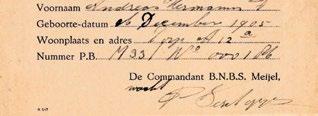 Voornaam Andreas Hermanus
Geboorte-datum 6 December 1905
Woonplaats en adres Dorp A 12a
Nummer P.B. M 33 / No 0001 Rb
De Commandant B.N.B.S. Meijel,